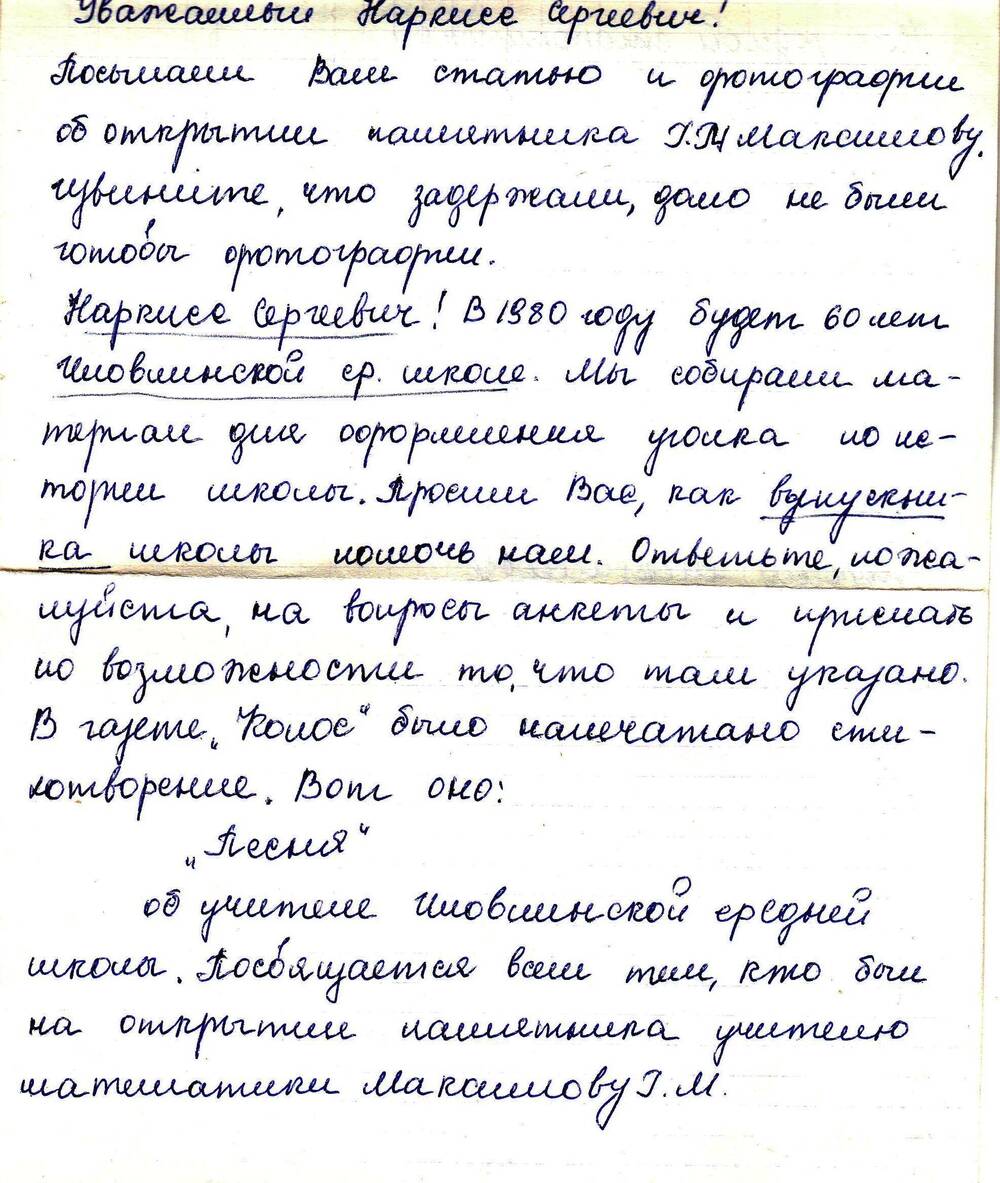 Уважаемый Наркисс Сергеевич!
Посылаем Вам статью и фотографии
об открытии памятника Г.М Максимову.
извините, что задержали, долго не были
готовы фотографии.
Наркисс Сергеевич! В 1980 году будет 60 лет
Иловлинской ср. школе. Мы собираем ма-
териал для оформления уголка по ис-
тории школы. Просим Вас, как выпускни-
ка школы помочь нам. Ответьте, пожа-
луйста, на вопросы анкеты и прислать
по возможности то, что там указано.
В газете „Колос“ было напечатано сти-
хотворение. Вот оно:
„Песня“
об учителе Иловлинской средней
школы. Посвящается всем тем, кто был
на открытии памятника учителю
математики Максимову Г.М.